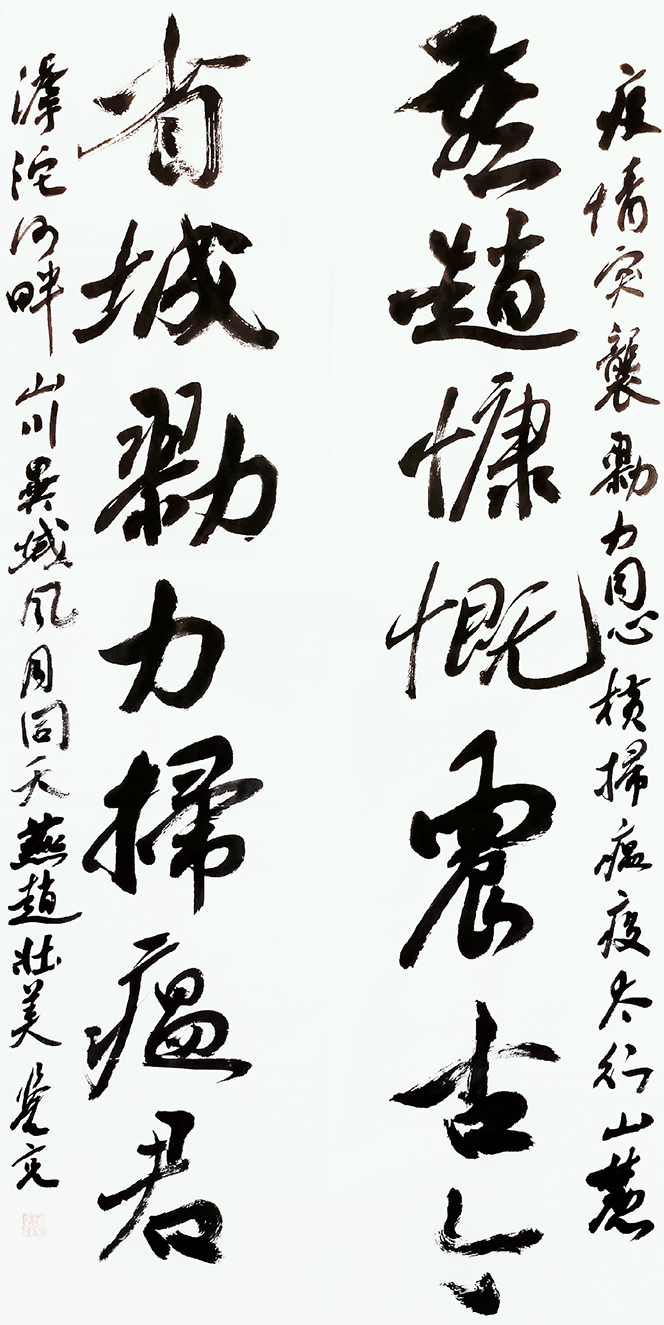 疫情突襲勠力同心橫掃瘟疫太行山麓
燕趙慷慨震古今
省城勠力掃瘟君
滹沱河畔山川異域風月同天燕趙壯美